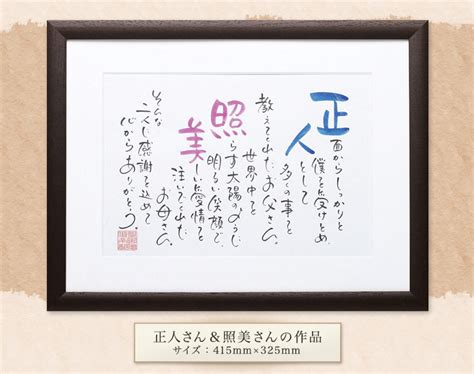 正面からしっかりと
僕を受けとめ
人として
多くの事を
教えてくれたお父さん。
世界中を
照らす太陽のように
明るい笑顔で、
美しい愛情を
注いでくれた
お母さん。
そんな
二人に感謝を込めて
心からありがとう。
正人さん&照美さんの作品
サイズ：415mm×325mm